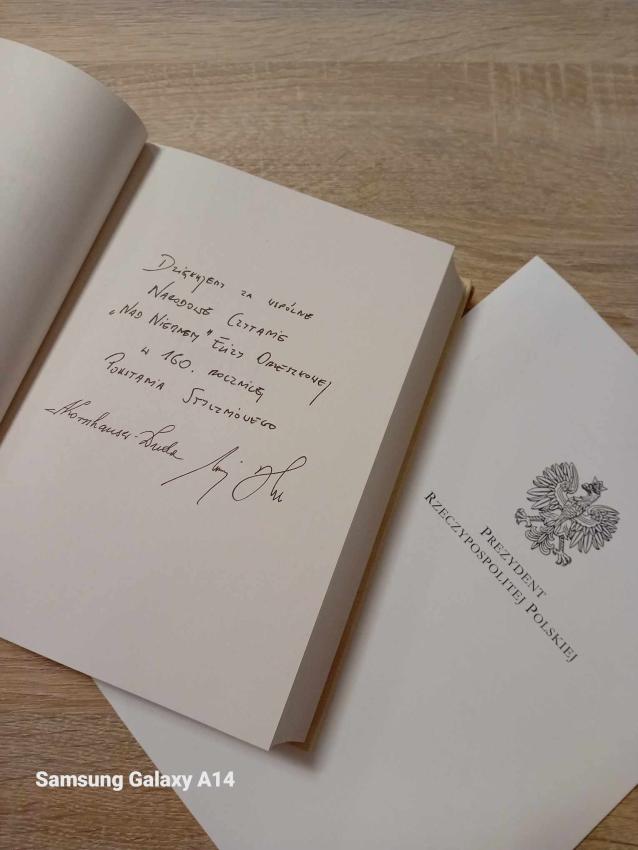 Dziękujemy za wspólne
Narodowe Czytanie
„Nad Niemnem” Elizy Orzeszkowej
w 160. rocznicę
Powstania Styczniowego
AKornhauser-Duda
PREZYDENT
RZECZYPOSPOLITEJ POLSKIEJ
Samsung Galaxy A14